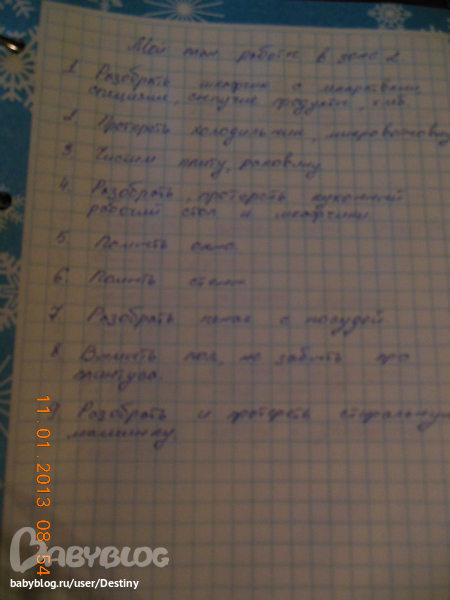 Мой план работы в зоне 2
1. Разобрать шкафчик с лекарствами,
специями, сыпучие продукты, хлеб
2. Протереть холодильник, микроволновку
3. Чистим плиту, раковину.
4. Разобрать, протереть кухонный
рабочий стол и шкафчики.
5. Помыть окно.
6. Помыть стены
7. Разобрать пенал с посудой
8. Вымыть пол, не забыть про
плинтуса.
9. Разобрать и протереть стиральную
машинку.
11.01.2013 08:54
BABYBLOG
babyblog.ru/user/Destiny